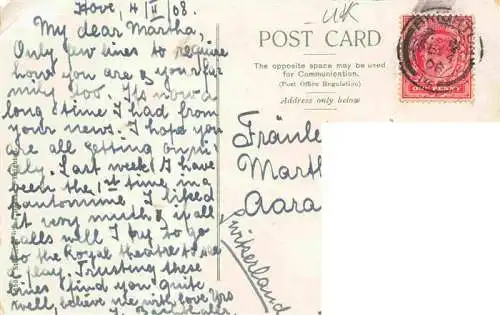 Hove, 4/II/08.
My dear Martha,
Only few lines to require
how you are & your fa-
mily too. It's now a
long time I had from
your news. I hope you
are all getting on ni-
cely. Last week I have
been the 1st time in a
Pantomime. I liked
it very much & if all
calls well I try to go
to the Royal theatre to see
a play. Trusting these
lines find you quite
well, believe me with love Yrs
UK
POST CARD
The opposite space may be used
for Communication.
(Post Office Regulation)
Address only below
Fräule
Mart
Aara
Switzerland
ONE PENNY